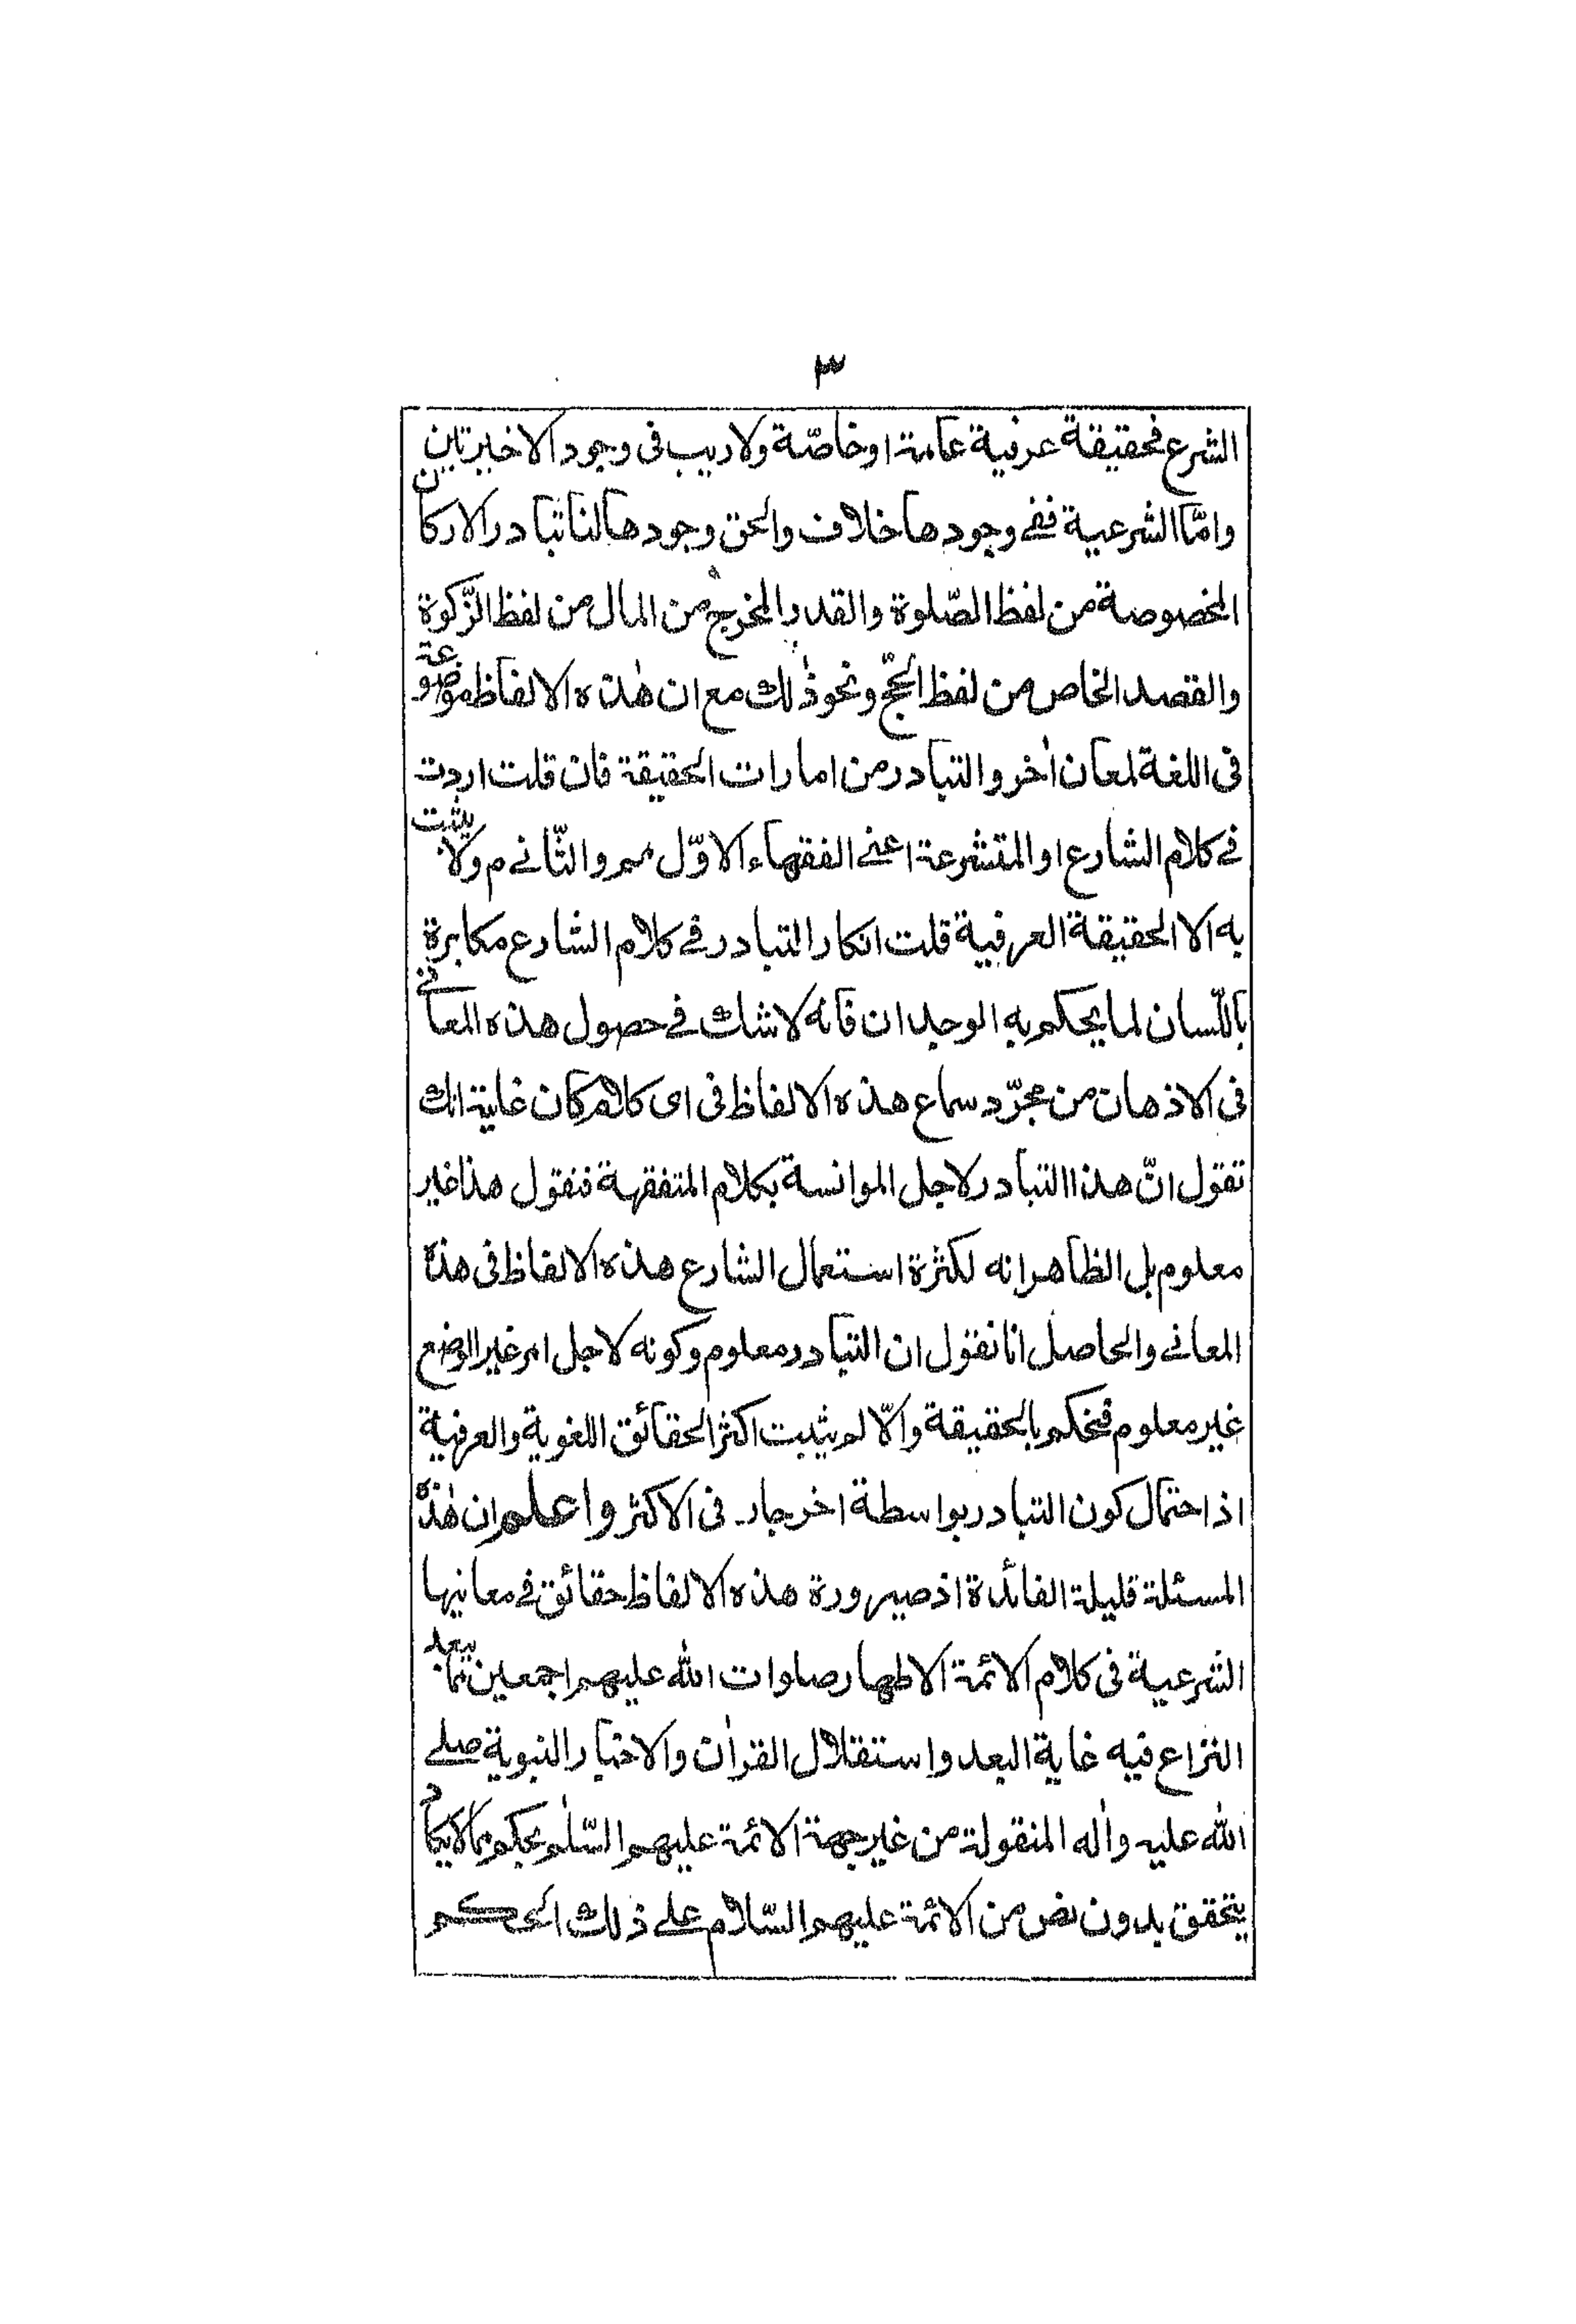 ٣
الشرع فحقيقة عرفية عامة او خاصّة ولا ريب فى وجود الاخيرتين
وامّا الشرعية ففى وجودها خلاف والحق وجودها لنا تبادر الاركان
المخصوصة من لفظ الصّلوة والقدر المخرج من المال من لفظ الزّكوة
والقصد الخاص من لفظ الحجّ ونحو ذٰلك مع ان هٰذه الالفاظ موضوعة
فى اللغة لمعان اٰخر والتبادر من امارات الحقيقة فان قلت اردت
فے كلام الشارع او المتشرعة اعنے الفقهاء الاوّل مم والثّانے م ولا يثبت
به الا الحقيقة العرفية قلت انكار التبادر فے كلام الشارع مكابرة
باللّسان لما يحكم به الوجدان فانه لا شك فے حصول هذه المعانے
فى الاذهان من مجرّد سماع هذه الالفاظ فى اى كلام كان غاية انك
تقول انّ هذا التبادر لاجل الموانسة بكلام المتفقهة فنقول هذا غير
معلوم بل الظاهر انه لكثرة استعمال الشارع هذه الالفاظ فى هذه
المعانے والحاصل انا نقول ان التبادر معلوم وكونه لاجل امر غير الوضع
غير معلوم فنحكم بالحقيقة والّا لم يثبت اكثر الحقائق اللغوية والعرفية
اذ احتمال كون التبادر بواسطة اخر جار فى الاكثر واعلم ان هٰذه
المسئلة قليلة الفائدة اذ صيرورة هذه الالفاظ حقائق فے معانيها
الشرعية فى كلام الائمة الاطهار صلوات الله عليهم اجمعين مما يبعد
النزاع فيه غاية البعد واستقلال القراٰن والاخبار النبوية صلے
الله عليه واٰله المنقولة من غير جهة الائمة عليهم السّلٰم بحكم مما لا يكاد
يتحقق بدون نص من الائمة عليهم السّلام علے ذلك الحكم